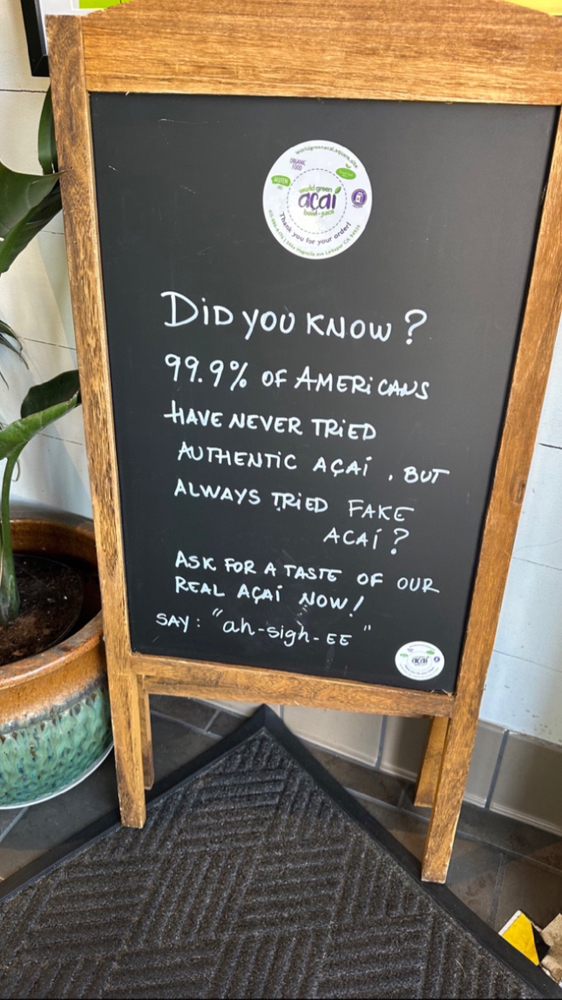 worldgreenacai.square.site
ORGANIC FOOD
GLUTEN
world green
açaí
bowl & juice
Thank you for your order!
DiD YOU KNOW?
99.9% OF AMERiCANS
HAVE NEVER TRiED
AUTHENTiC AÇAÍ , BUT
ALWAYS TRiED FAKE
ACAÍ?
ASK FOR A TASTE OF OUR
REAL AÇAÍ NOW!
SAY: "ah-sigh-EE"
açaí